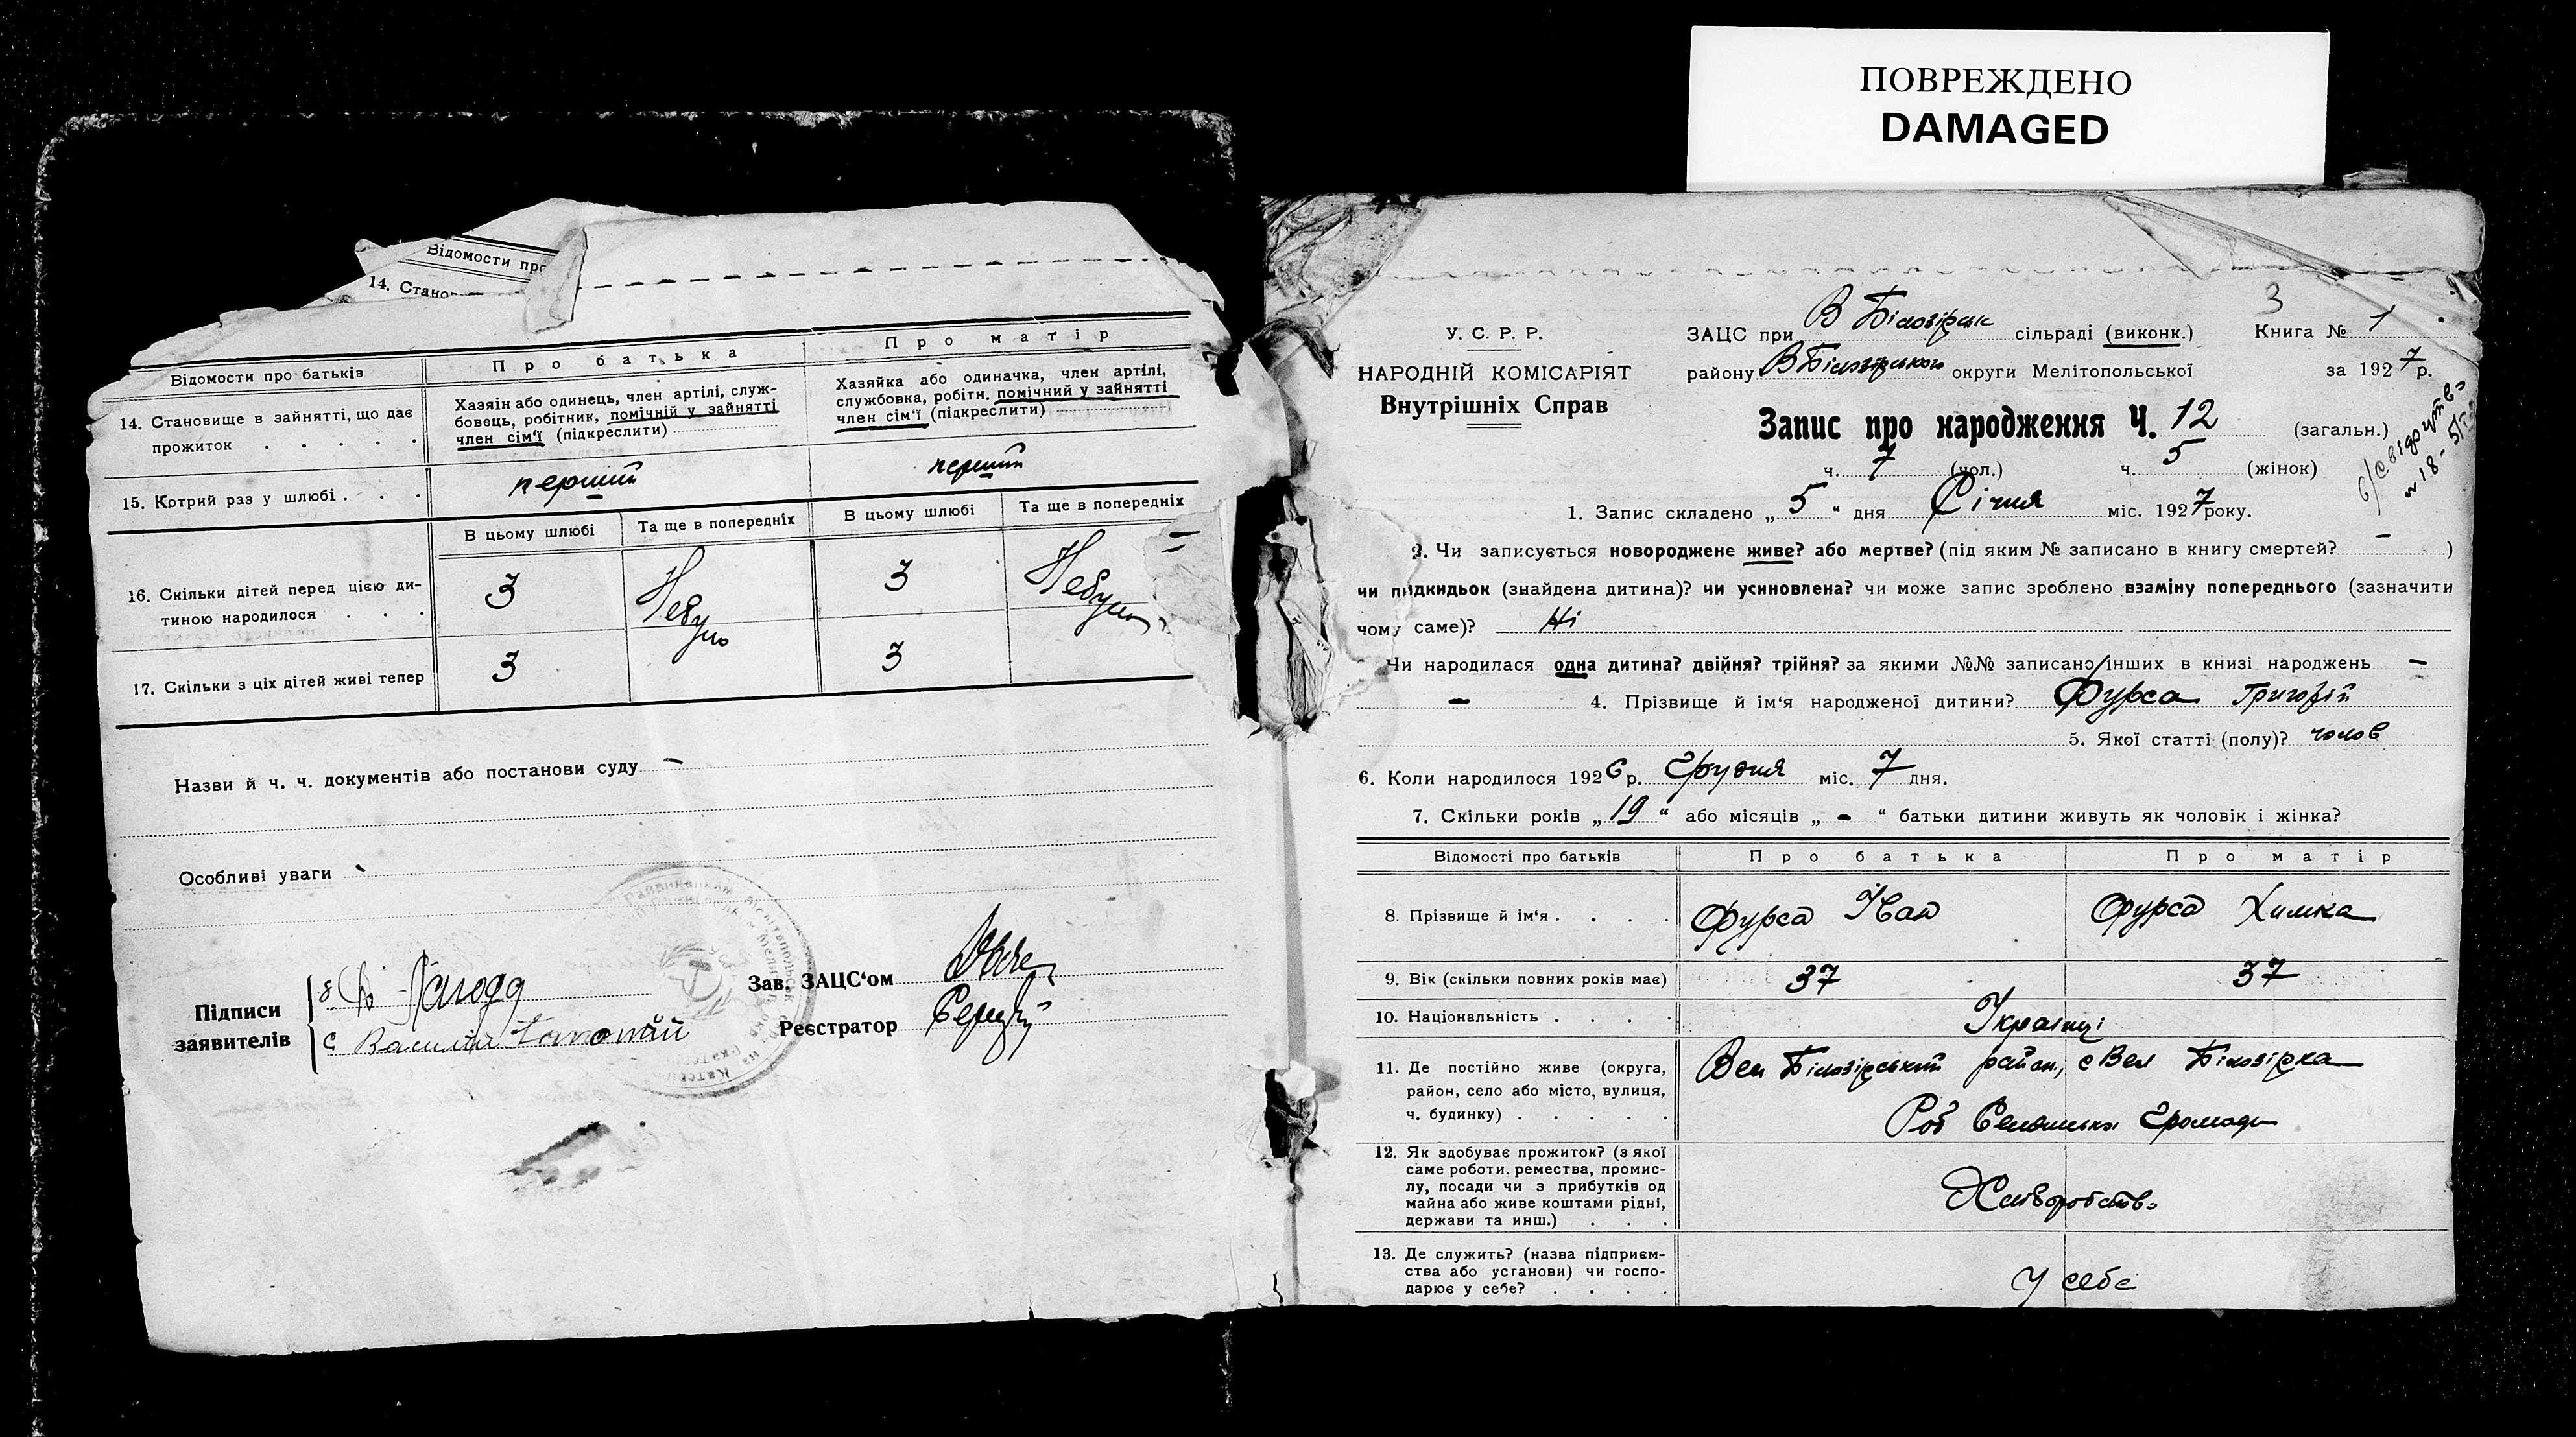 ПОВРЕЖДЕНО
DAMAGED
Відомости про
14. Стано
Відомости про батьків
Про батька
Про матір
14. Становище в зайнятті, що дає прожиток . . . . .
Хазяін або одинець, член артілі, служ-
бовець, робітник, помічній у зайнятті
член сім'ї (підкреслити)
Хазяйка або одиначка, член артілі,
службовка, робітн. помічний у зайнятті
член сім'ї (підкреслити)
15. Котрий раз у шлюбі . . . перший перший
В цьому шлюбі Та ще в попередніх В цьому шлюбі Та ще в попередніх
16. Скільки дітей перед цією ди-
тиною народилося . . . 3 Небуло 3 Небуло
17. Скільки з ціх дітей живі тепер 3 3
Назви й ч. ч. документів або постанови суду -
Особливі уваги -
Підписи
заявителів
Василій
Зав. ЗАЦС'ом
Реєстратор
3
У. С. Р. Р.
НАРОДНІЙ КОМІСАРІЯТ
Внутрішніх Справ
ЗАЦС при В Білозірськ сільраді (виконк.) Книга № 1
району ВБілозірського округи Мелітопольської за 1927 р.
Запис про народження Ч. 12 (загальн.)
ч. 7 (чол.) ч. 5 (жінок)
1. Запис складено „ 5 “ дня Січня міс. 1927 року.
2. Чи записується новороджене живе? або мертве? (під яким № записано в книгу смертей? - )
чи підкидьок (знайдена дитина)? чи усиновлена? чи може запис зроблено взаміну попереднього (зазначити
чому саме)? Ні
Чи народилася одна дитина? двійня? трійня? за якими №№ записано інших в книзі народжень -
- 4. Прізвище й ім'я народженої дитини? Фурса Григорій
5. Якої статті (полу)? чолов
6. Коли народилося 1926 р. Грудня міс. 7 дня.
7. Скільки років „ 19 “ або місяців „ - “ батьки дитини живуть як чоловік і жінка?
Відомості про батьків Про батька Про матір
8. Прізвище й ім'я . . . . Фурса Іван Фурса Химка
9. Вік (скільки повних років має) 37 37
10. Національність . . . . Українці
11. Де постійно живе (округа,
район, село або місто, вулиця,
ч. будинку) . . . . .
Вел Білозірський район, с Вел Білозірка
Роб Селянська Громади
12. Як здобуває прожиток? (з якої
саме роботи, ремества, промис-
лу, посади чи з прибутків од
майна або живе коштами рідні,
держави та инш.) . . .
Хліборобство
13. Де служить? (назва підприєм-
ства або установи) чи госпо-
дарює у себе? . . . .
У себе